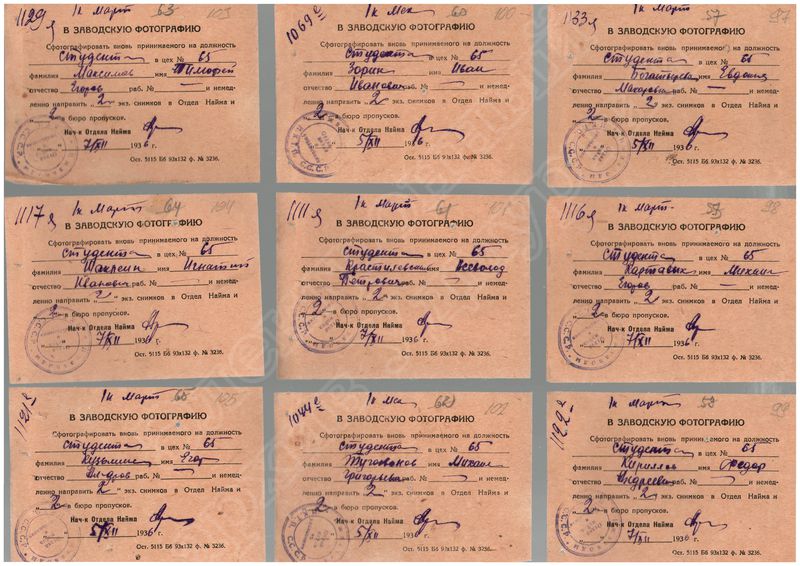 1129я 1к Март 63 103
В ЗАВОДСКУЮ ФОТОГРАФИЮ
Сфотографировать вновь принимаемого на должность
Студента в цех № 65
фамилия Максимов имя Тимофей
отчество Егоров раб. № — и немед-
ленно направить „2" экз. снимков в Отдел Найма и
2 в бюро пропусков.
Нач-к Отдела Найма
7/XII 1936 г.
Ост. 5115 Бб 93х132 ф. № 3236.
1069 1к 60 100
В ЗАВОДСКУЮ ФОТОГРАФИЮ
Сфотографировать вновь принимаемого на должность
Студента в цех № 65
фамилия Зорин имя Иван
отчество Иванович раб. № — и немед-
ленно направить „2" экз. снимков в Отдел Найма и
2 в бюро пропусков.
Нач-к Отдела Найма
5/XII 1936 г.
Ост. 5115 Бб 93х132 ф. № 3236.
1133я 1к Март 57 97
В ЗАВОДСКУЮ ФОТОГРАФИЮ
Сфотографировать вновь принимаемого на должность
Студента в цех № 65
фамилия имя Евдокия
отчество Макаровна раб. № — и немед-
ленно направить „2" экз. снимков в Отдел Найма и
2 в бюро пропусков.
Нач-к Отдела Найма
5/XII 1936 г.
Ост. 5115 Бб 93х132 ф. № 3236.
1117я 1к Март 64 104
В ЗАВОДСКУЮ ФОТОГРАФИЮ
Сфотографировать вновь принимаемого на должность
Студента в цех № 65
фамилия имя Игнатий
отчество Иванович раб. № — и немед-
ленно направить „2" экз. снимков в Отдел Найма и
2 в бюро пропусков.
Нач-к Отдела Найма
7/XII 1936 г.
Ост. 5115 Бб 93х132 ф. № 3236.
1111я 1к Март 61 101
В ЗАВОДСКУЮ ФОТОГРАФИЮ
Сфотографировать вновь принимаемого на должность
Студента в цех № 65
фамилия имя Всеволод
отчество Петрович раб. № — и немед-
ленно направить „2" экз. снимков в Отдел Найма и
2 в бюро пропусков.
Нач-к Отдела Найма
7/XII 1936 г.
Ост. 5115 Бб 93х132 ф. № 3236.
1116я 1к Март 98
В ЗАВОДСКУЮ ФОТОГРАФИЮ
Сфотографировать вновь принимаемого на должность
Студента в цех № 65
фамилия Картавых имя Михаил
отчество Егоров раб. № — и немед-
ленно направить „2" экз. снимков в Отдел Найма и
2 в бюро пропусков.
Нач-к Отдела Найма
7/XII 1936 г.
Ост. 5115 Бб 93х132 ф. № 3236.
1121 1к Март 65 105
В ЗАВОДСКУЮ ФОТОГРАФИЮ
Сфотографировать вновь принимаемого на должность
Студента в цех № 65
фамилия имя Егор
отчество раб. № — и немед-
ленно направить „2" экз. снимков в Отдел Найма и
2 в бюро пропусков.
Нач-к Отдела Найма
5/XII 1936 г.
Ост. 5115 Бб 93х132 ф. № 3236.
1044 1к 62 102
В ЗАВОДСКУЮ ФОТОГРАФИЮ
Сфотографировать вновь принимаемого на должность
Студента в цех № 65
фамилия имя Михаил
отчество Григорьевич раб. № — и немед-
ленно направить „2" экз. снимков в Отдел Найма и
2 в бюро пропусков.
Нач-к Отдела Найма
5/XII 1936 г.
Ост. 5115 Бб 93х132 ф. № 3236.
1122 1к Март 59 99
В ЗАВОДСКУЮ ФОТОГРАФИЮ
Сфотографировать вновь принимаемого на должность
Студента в цех № 65
фамилия Кириллов имя Федор
отчество Андреевич раб. № — и немед-
ленно направить „2" экз. снимков в Отдел Найма и
2 в бюро пропусков.
Нач-к Отдела Найма
7/XII 1936 г.
Ост. 5115 Бб 93х132 ф. № 3236.